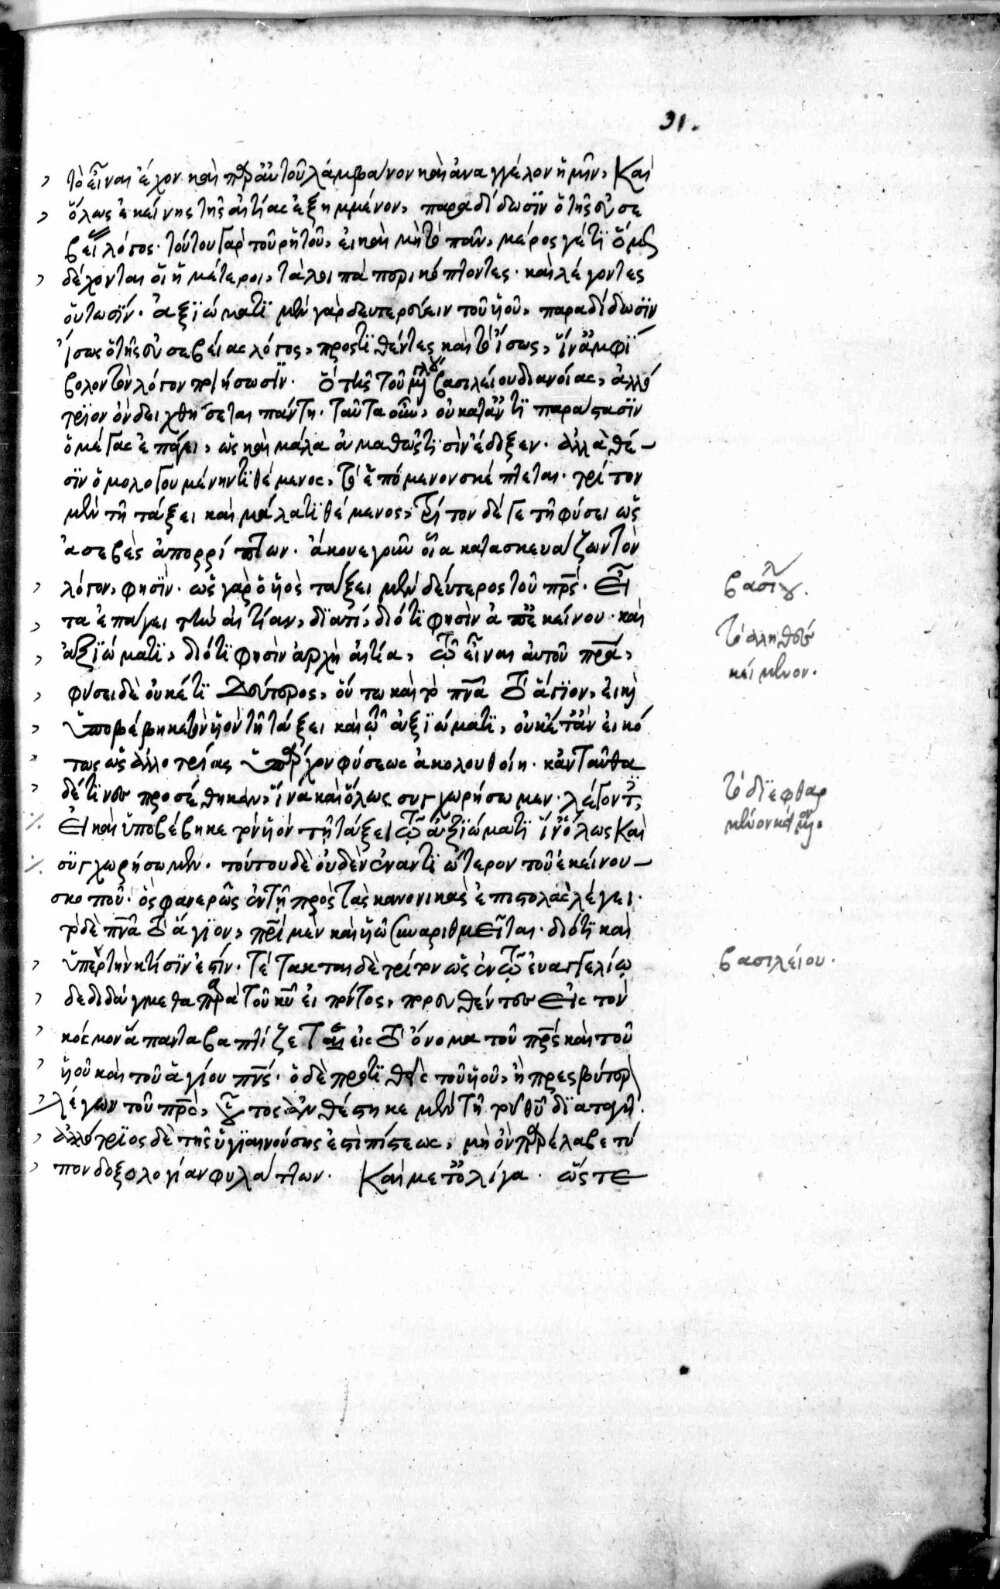 31.
τὸ εἶναι ἔχον. καὶ παρ' αὐτοῦ λάμβανον καὶ ἀναγγέλον ἡμῖν, Καὶ
ὅλως ἐκείνης τῆς αἰτίας ἐξημμένον, παραδίδωσϊν ὁ τῆς εὐσε
βεί λόγος. τούτου γὰρ τοῦ ῥητοῦ, εἰ καὶ μὴ τὸ πᾶν, μέρος γέ τϊ ὅμως
δέχονται οἱ ἡμέτεροι, τὰ λοιπὰ περικόπτοντες. καὶ λέγοντες
οὕτωσΐν. ἀξϊώματϊ μὲν γὰρ δευτερεύειν τοῦ ὑοῦ, παραδίδωσϊν
ἴσως ὁ τῆς εὐσεβείας λόγος, προστϊθέντες καὶ τὸ ἴσως, ἵν' ἀμφί
βολον τὸν λόγον ποιήσωσϊν. ὁ τῆς τοῦ μεγάλου βασιλείου διανοίας, ἀλλό
τριον ὂν δειχθήσεται πάντη. ταῦτα οὖν, οὐ κατ' ἀντϊπαράστασϊν
ὁ μέγας ἐπάγει, ὡς καὶ μάλα ἀμαθῶς τϊσὶν ἔδοξεν. ἀλλὰ θέ
σϊν ὁμολογουμένην τϊθέμενος, τὸ ἑπόμενον σκέπτεται. τρίτον
μὲν τῆ τάξει καὶ μάλα τϊθέμενος, τρίτον δέ γε τῆ φύσει ὡς
ἀσεβὲς ἀπορρίπτων. ἄκουε γοῦν οἷα κατασκευάζων τὸν
λόγον, φησΐν. ὡς γὰρ ὁ ὑὸς τάξει μὲν δεύτερος τοῦ πρς. Εἶ
τα ἐπάγει τὴν αἰτίαν, δϊατί, διότϊ φησὶν ἀπ' ἐκείνου. καὶ
ἀξϊώματϊ, διότϊ φησὶν ἀρχὴ αἰτία, τῶ εἶναι αὐτοῦ πρα,
φύσει δὲ οὐκέτϊ δεύτερος, οὕτω καὶ τὸ πνα τὸ ἅγϊον, εἰ καὶ
ὑποβέβηκε τὸν ὑὸν τῆ τάξει καὶ τῶ ἀξϊώματϊ, οὐκέτ' ἂν εἰκό
τως ὡς ἀλλοτρίας ὑπάρχον φύσεως ἀκολουθοίη. κἀνταῦθα
δέ τϊνες προσέθηκαν, ἵνα καὶ ὅλως συγχωρήσωμεν. λέγοντες,
Εἰ καὶ ὑποβέβηκε τὸν ὑὸν τῆ τάξει τῶ ἀξϊώματϊ ἵν' ὅλως καὶ
συγχωρήσωμεν. τούτου δὲ οὐδὲν ἐναντϊώτερον τοῦ ἐκείνου
σκοποῦ. ὃς φανερῶς ἐν τῆ πρὸς τὰς κανονικὰς ἐπιστολὰς λέγει.
τὸ δὲ πνα τὸ ἅγϊον, πρὶ μὲν καὶ ὑῶ συναριθμεῖται. διότϊ καὶ
ὑπὲρ τὴν κτίσϊν ἐστίν. τέτακται δὲ τρίτον ὡς ἐν τῶ εὐαγγελίῳ
δεδιδάγμεθα παρὰ τοῦ κυ εἰπόντος, πορευθέντες εἰς τὸν
κόσμον ἅπαντα βαπτίζετε εἰς τὸ ὄνομα τοῦ πρς καὶ τοῦ
ὑοῦ καὶ τοῦ ἁγίου πνς. ὁ δὲ προτϊθεὶς τοῦ ὑοῦ, ἢ πρεσβύτερον
λέγων τοῦ πρς, οὗτος ἀνθέστηκε μὲν τῆ τοῦ θυ δϊαταγῆ.
ἀλλότρϊος δὲ τῆς ὑγϊαινούσης ἐστὶ πίστεως, μὴ ὃν παρέλαβε τύ
πον δοξολογίαν φυλάττων. Καὶ μετ' ὀλίγα. ὥστε
βασιλείου.
τὸ ἀληθὲς
κείμενον.
τὸ δϊεφθαρ
μένον
βασιλείου.